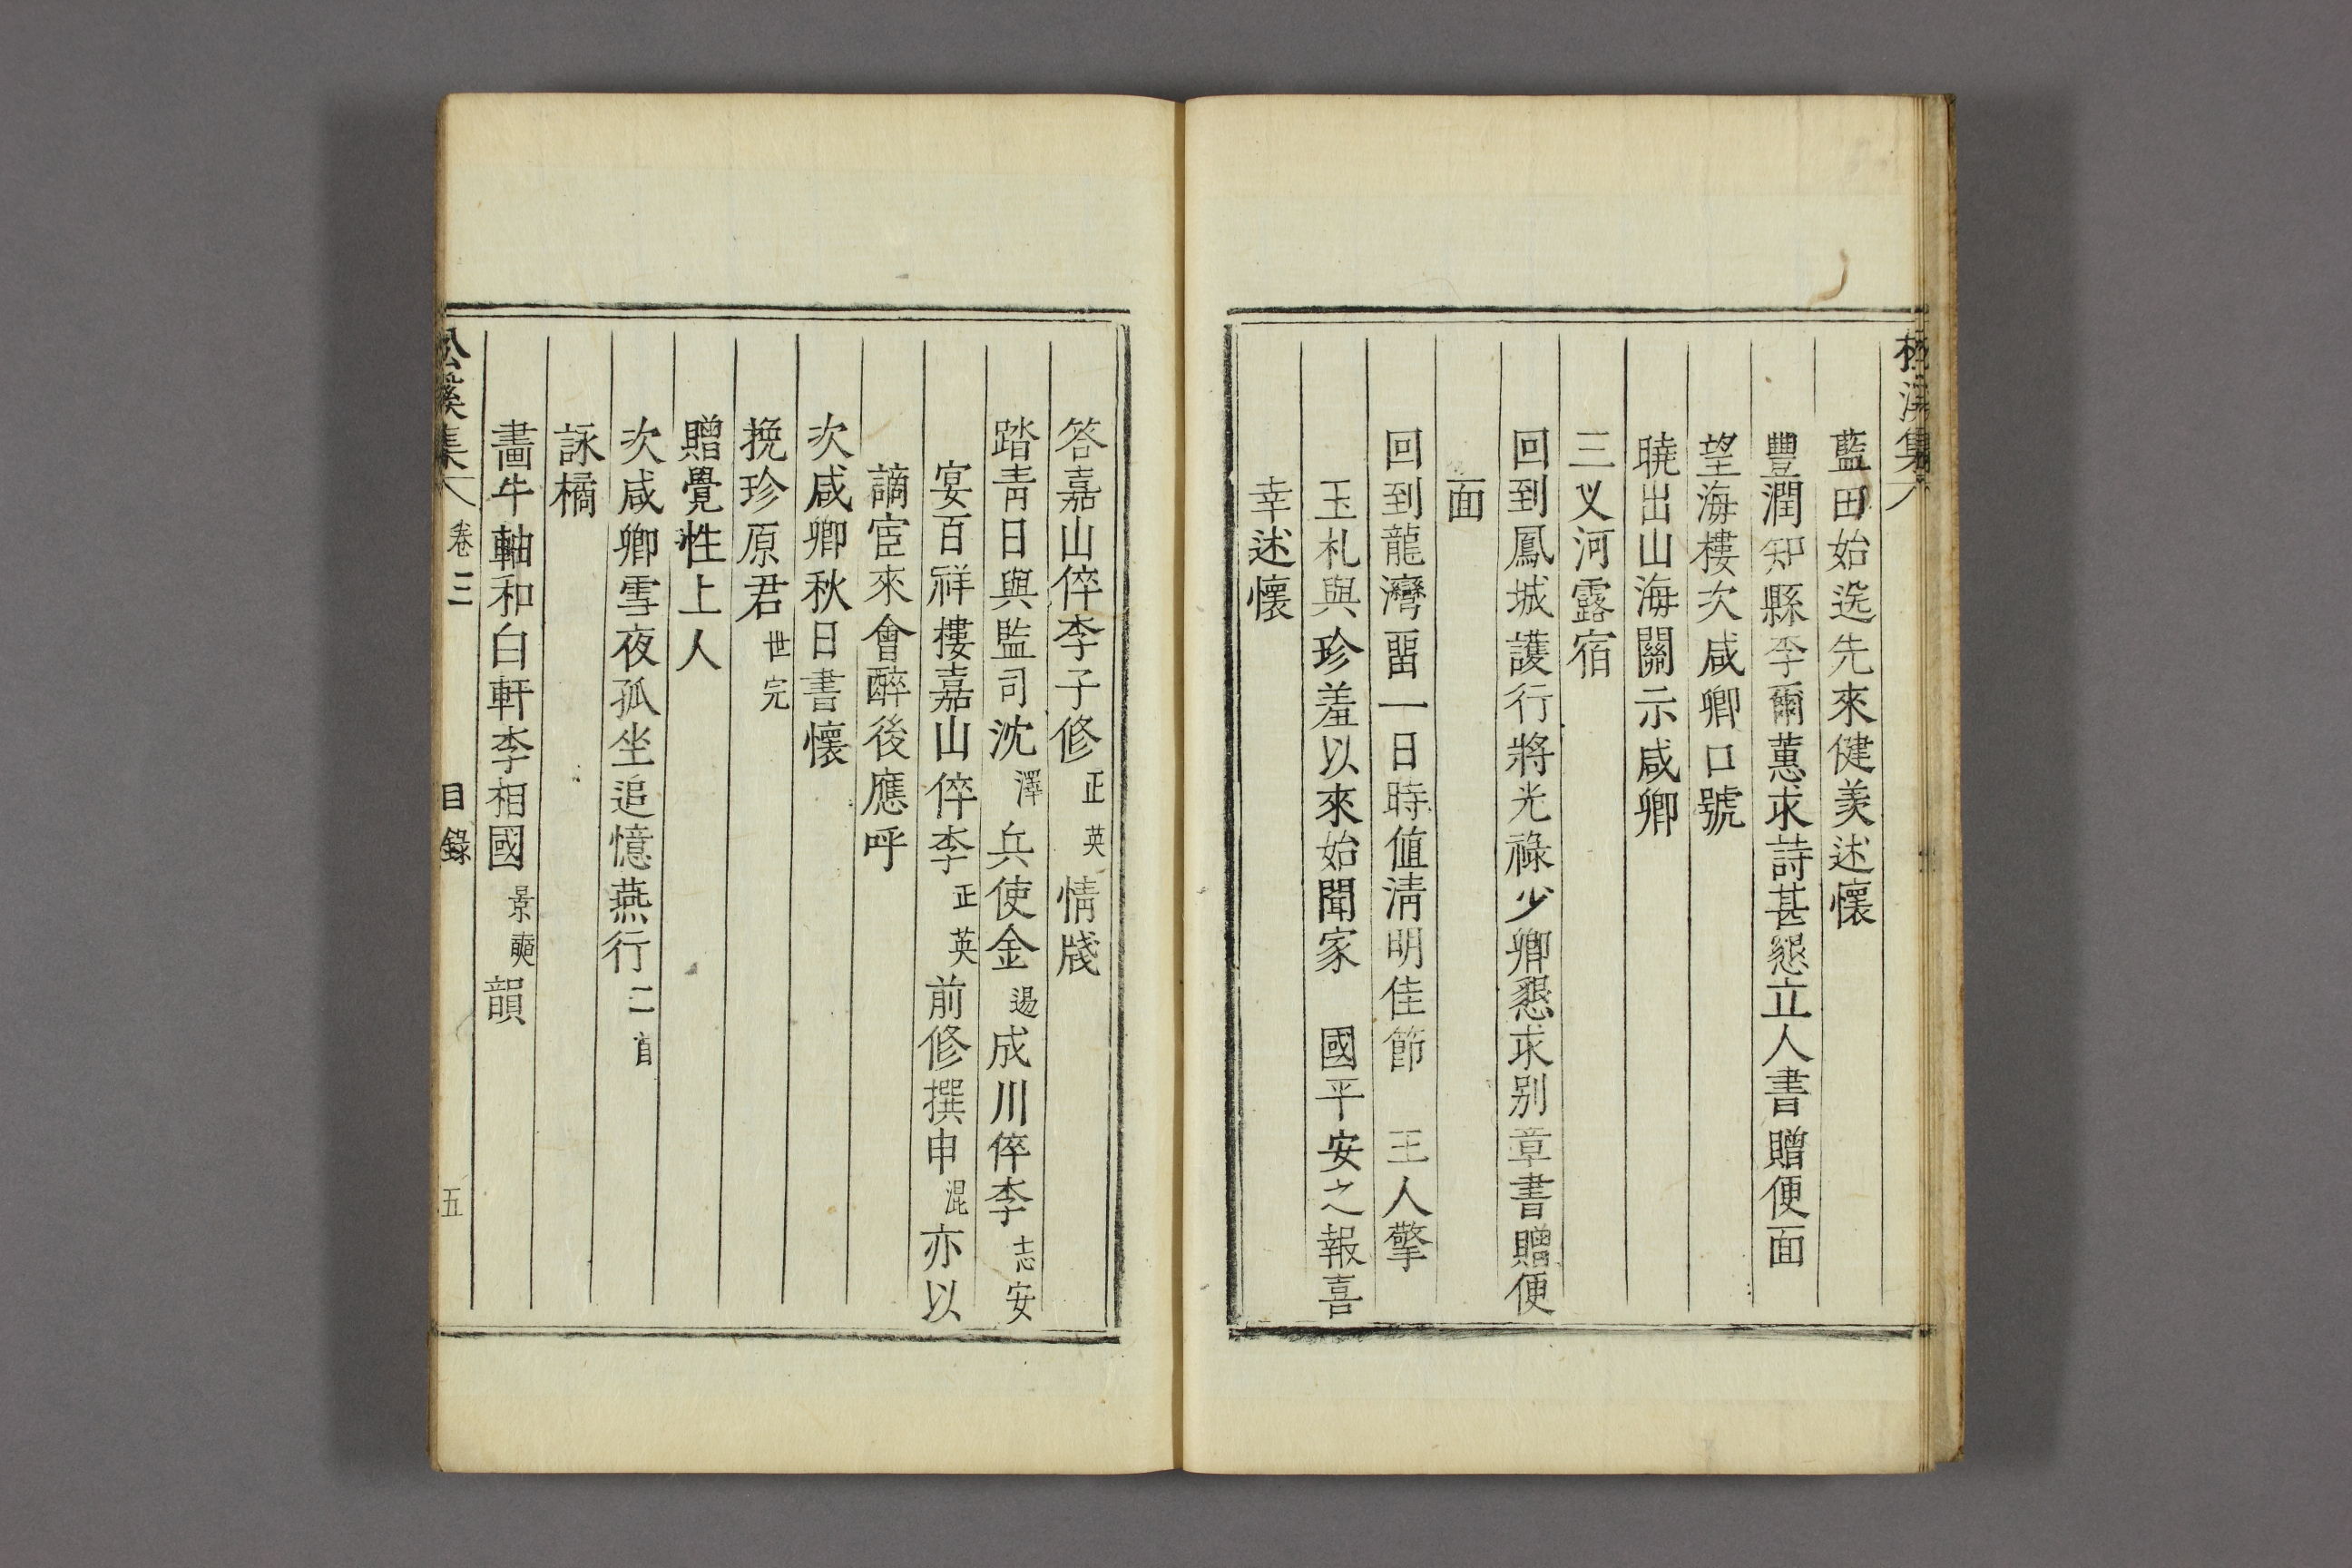 藍田始送先來健羨述懷
豐潤知縣李爾蕙求詩甚懇立人書贈便面
望海樓次咸卿口號
曉出山海關示咸卿
三叉河露宿
回到鳳城護行將光祿少卿懇求别章書贈便
面
回到龍灣留一日時值淸明佳節 王人擎
玉札與珍羞以來始聞家 國平安之報喜
幸述懷
答嘉山倅李子修正英情牋
踏靑日與監司沈澤兵使金逷成川倅李志安
宴百祥樓嘉山倅李正英前修撰申混亦以
謫宦來會醉後應呼
次咸卿秋日書懷
挽珍原君世完
贈覺性上人
次咸卿雪夜孤坐追憶燕行二首
詠橘
畵牛軸和白軒李相國景奭韻
松溪集 卷三 目錄 五